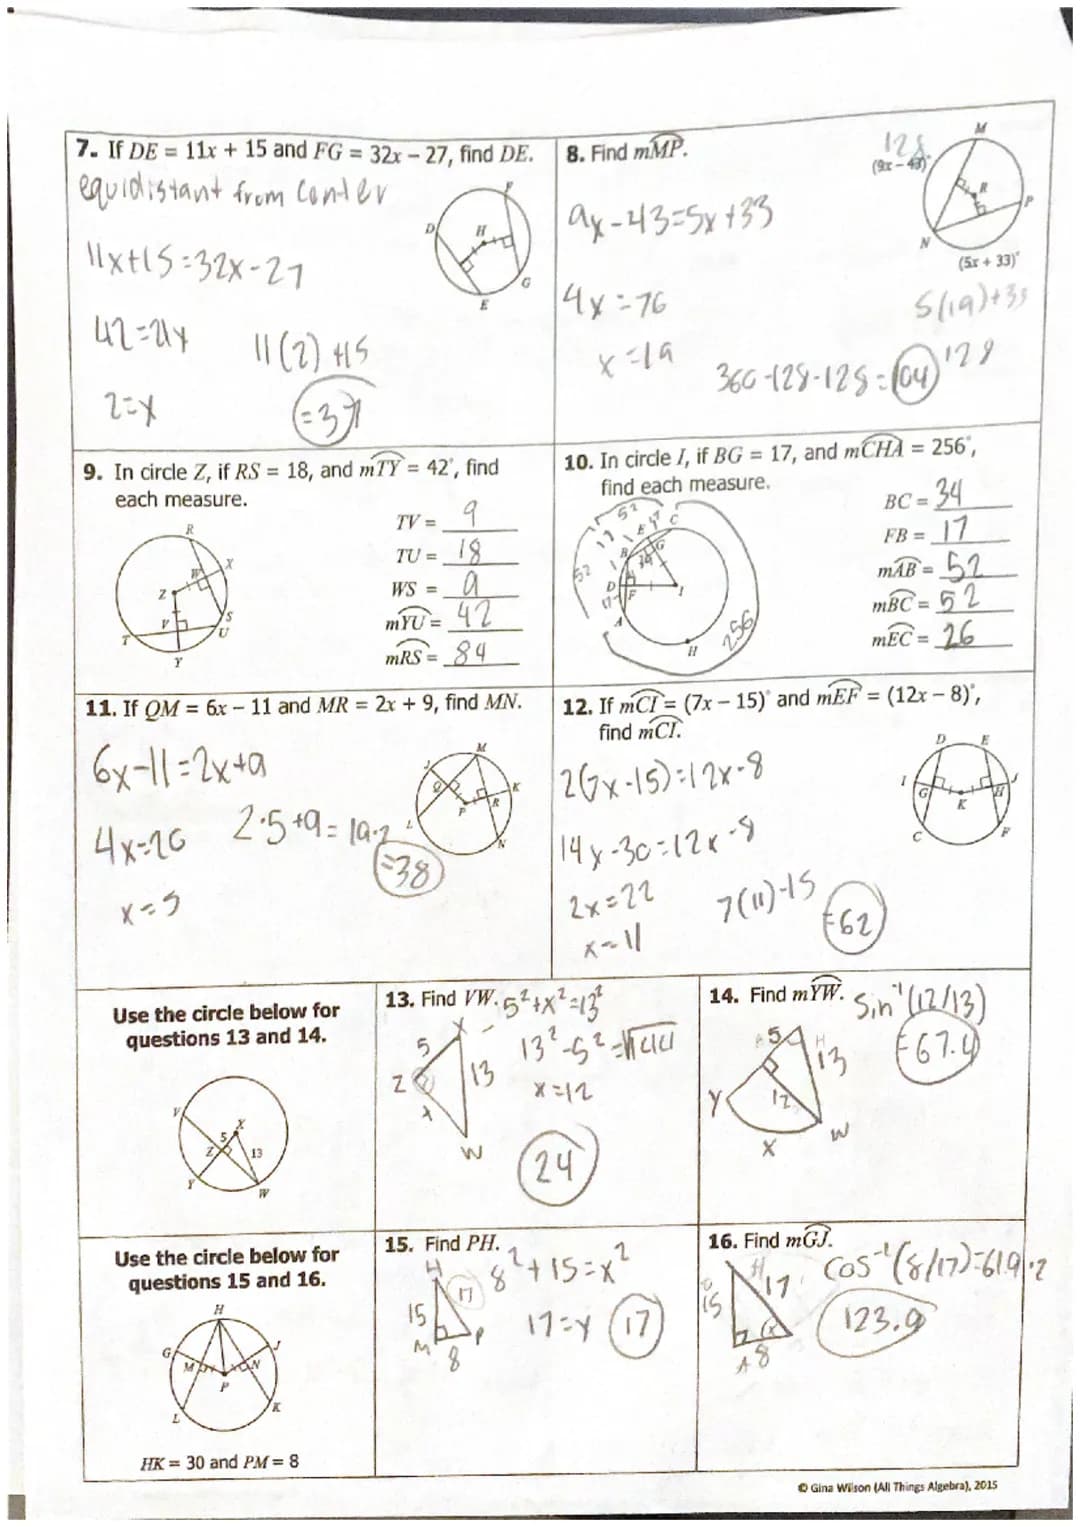 7. If DE = 11x + 15 and FG = 32x – 27, find DE.
equidistant from center
11x+15=32x-27
42=21x
11(2)+15
2=x
=37
D
H
F
G
E
8. Find mMP.
128
(9x – 43)°
9x-43=5x+33
4x=76
x=19
M
R
P
N
(5x + 33)°
5(19)+33
128
360-128-128=104
9. In circle Z, if RS = 18, and mTY = 42°, find
each measure.
R
X
W
Z
S
V
U
T
Y
TV = 9
TU = 18
WS = 9
mYU = 42
mRS = 84
10. In circle I, if BG = 17, and mCHA = 256°,
find each measure.
52
17
E
C
B
G
52
D
F
I
17
A
H
256
BC = 34
FB = 17
mAB = 52
mBC = 52
mEC = 26
11. If QM = 6x – 11 and MR = 2x + 9, find MN.
6x-11=2x+9
4x=20
2·5+9=19·2
=38
x=5
J
M
Q
K
P
R
L
N
12. If mCI = (7x – 15)° and mEF = (12x – 8)°,
find mCI.
2(7x-15)=12x-8
14x-30=12x-8
2x=22
x=11
7(11)-15
=62
D
E
I
J
G
K
H
C
F
Use the circle below for
questions 13 and 14.
V
X
5
Z
13
Y
W
13. Find VW.
5²+x²=13²
13²-5²=√144
x=12
24
X
5
Z
13
x
W
14. Find mYW.
Sin⁻¹(12/13)
=67.4
5
13
12
Y
W
X
Use the circle below for
questions 15 and 16.
H
G
J
M
N
P
L
K
HK = 30 and PM = 8
15. Find PH.
8²+15=x²
17=x
17
H
17
15
M
P
8
16. Find mGJ.
cos⁻¹(8/17)=61.9·2
123.9
H
17
15
8
© Gina Wilson (All Things Algebra), 2015